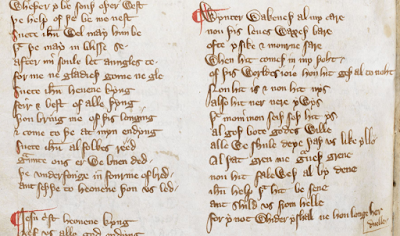 Wheþer y be souþ oþer west
þe help of þe be me nest
Suete ihu wel may him be
þt þe may in blisse se
after mi soule let aungles te
for me ne gladieþ gome ne gle
Suete ihu heuene kyng
feir & best of alle þyng
þou bring me of þis longing
& come to þe at myn endyng
Suete ihu al folkes reed
graunte ous er we buen ded
þe vnderfonge in fourme of bred
ant seþþe to heouene þou vs led
Jesu crist heouene kyng
ȝef vs alle god endyng
Wynter wakeneþ al my care
nou þis leues waxeþ bare
ofte y sike & mourne sare
When hit comeþ in my þoht
of þis worldes ioie hou hit goþ al to noht
Nou hit is & nou hit nys
also hit ner nere ywys
þt moni mon seiþ soþ hit ys
al goþ bote godes wille
alle we shule deye þah vs like ylle
Al þat gren me graueþ grene
nou hit faleweþ al by dene
ihu help þt hit be sene
ant shild us from helle
for y not whider y shal ne hou longe her duelle